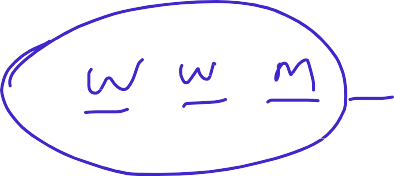 W W M _